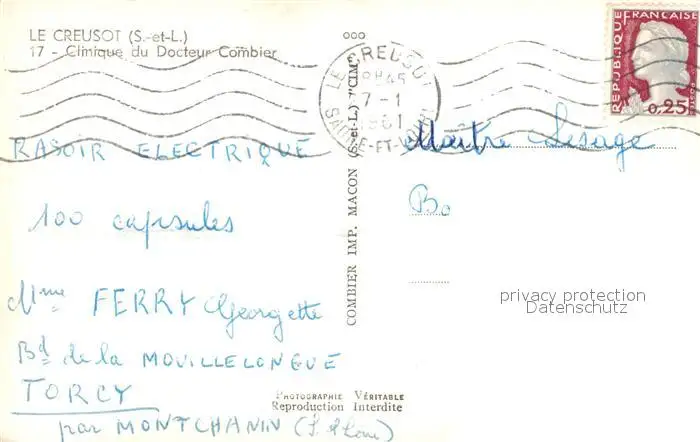 LE CREUSOT (S.-et-L.)
17 - Clinique du Docteur Combier
RASOIR ELECTRIQUE
100 capsules
Mme FERRY Georgette
Bd de la MOUILLELONGUE
TORCY
par MONTCHANIN (S. et Loire)
COMBIER IMP. MACON (S-et-L.) "CIM"
PHOTOGRAPHIE VÉRITABLE
Reproduction Interdite
LE CREUSOT
18H45
7-1
1961
SAONE-ET-LOIRE
REPUBLIQUE FRANÇAISE
0,25
Maître Lesage
Bo
privacy protection
Datenschutz